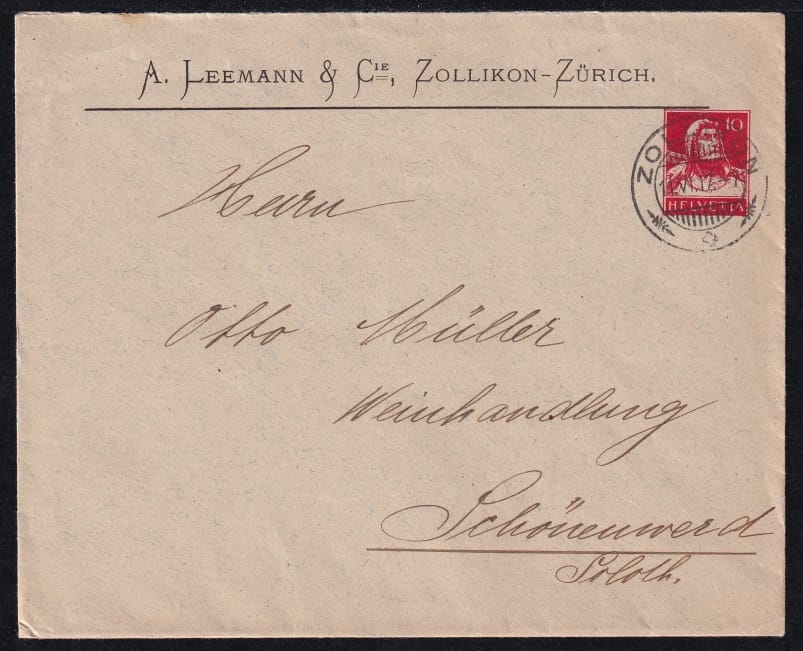 A. LEEMANN & CIE, ZOLLIKON-ZÜRICH.
10
HELVETIA
Herrn
Otto Müller
Weinhandlung
Schönenwerd
Soloth.